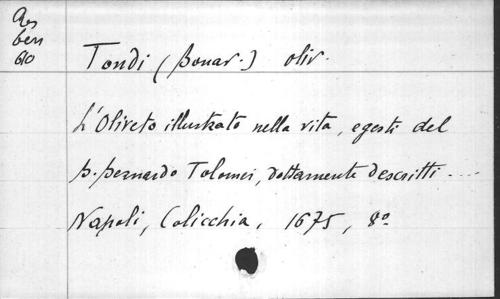 As
ben
60
Tondi (Bonav.) oliv.
L'Oliveto illustrato nella vita, e gesti del
b. bernardo Tolomei, dottamente descritti....
Napoli, Colicchia, 1675, 8º